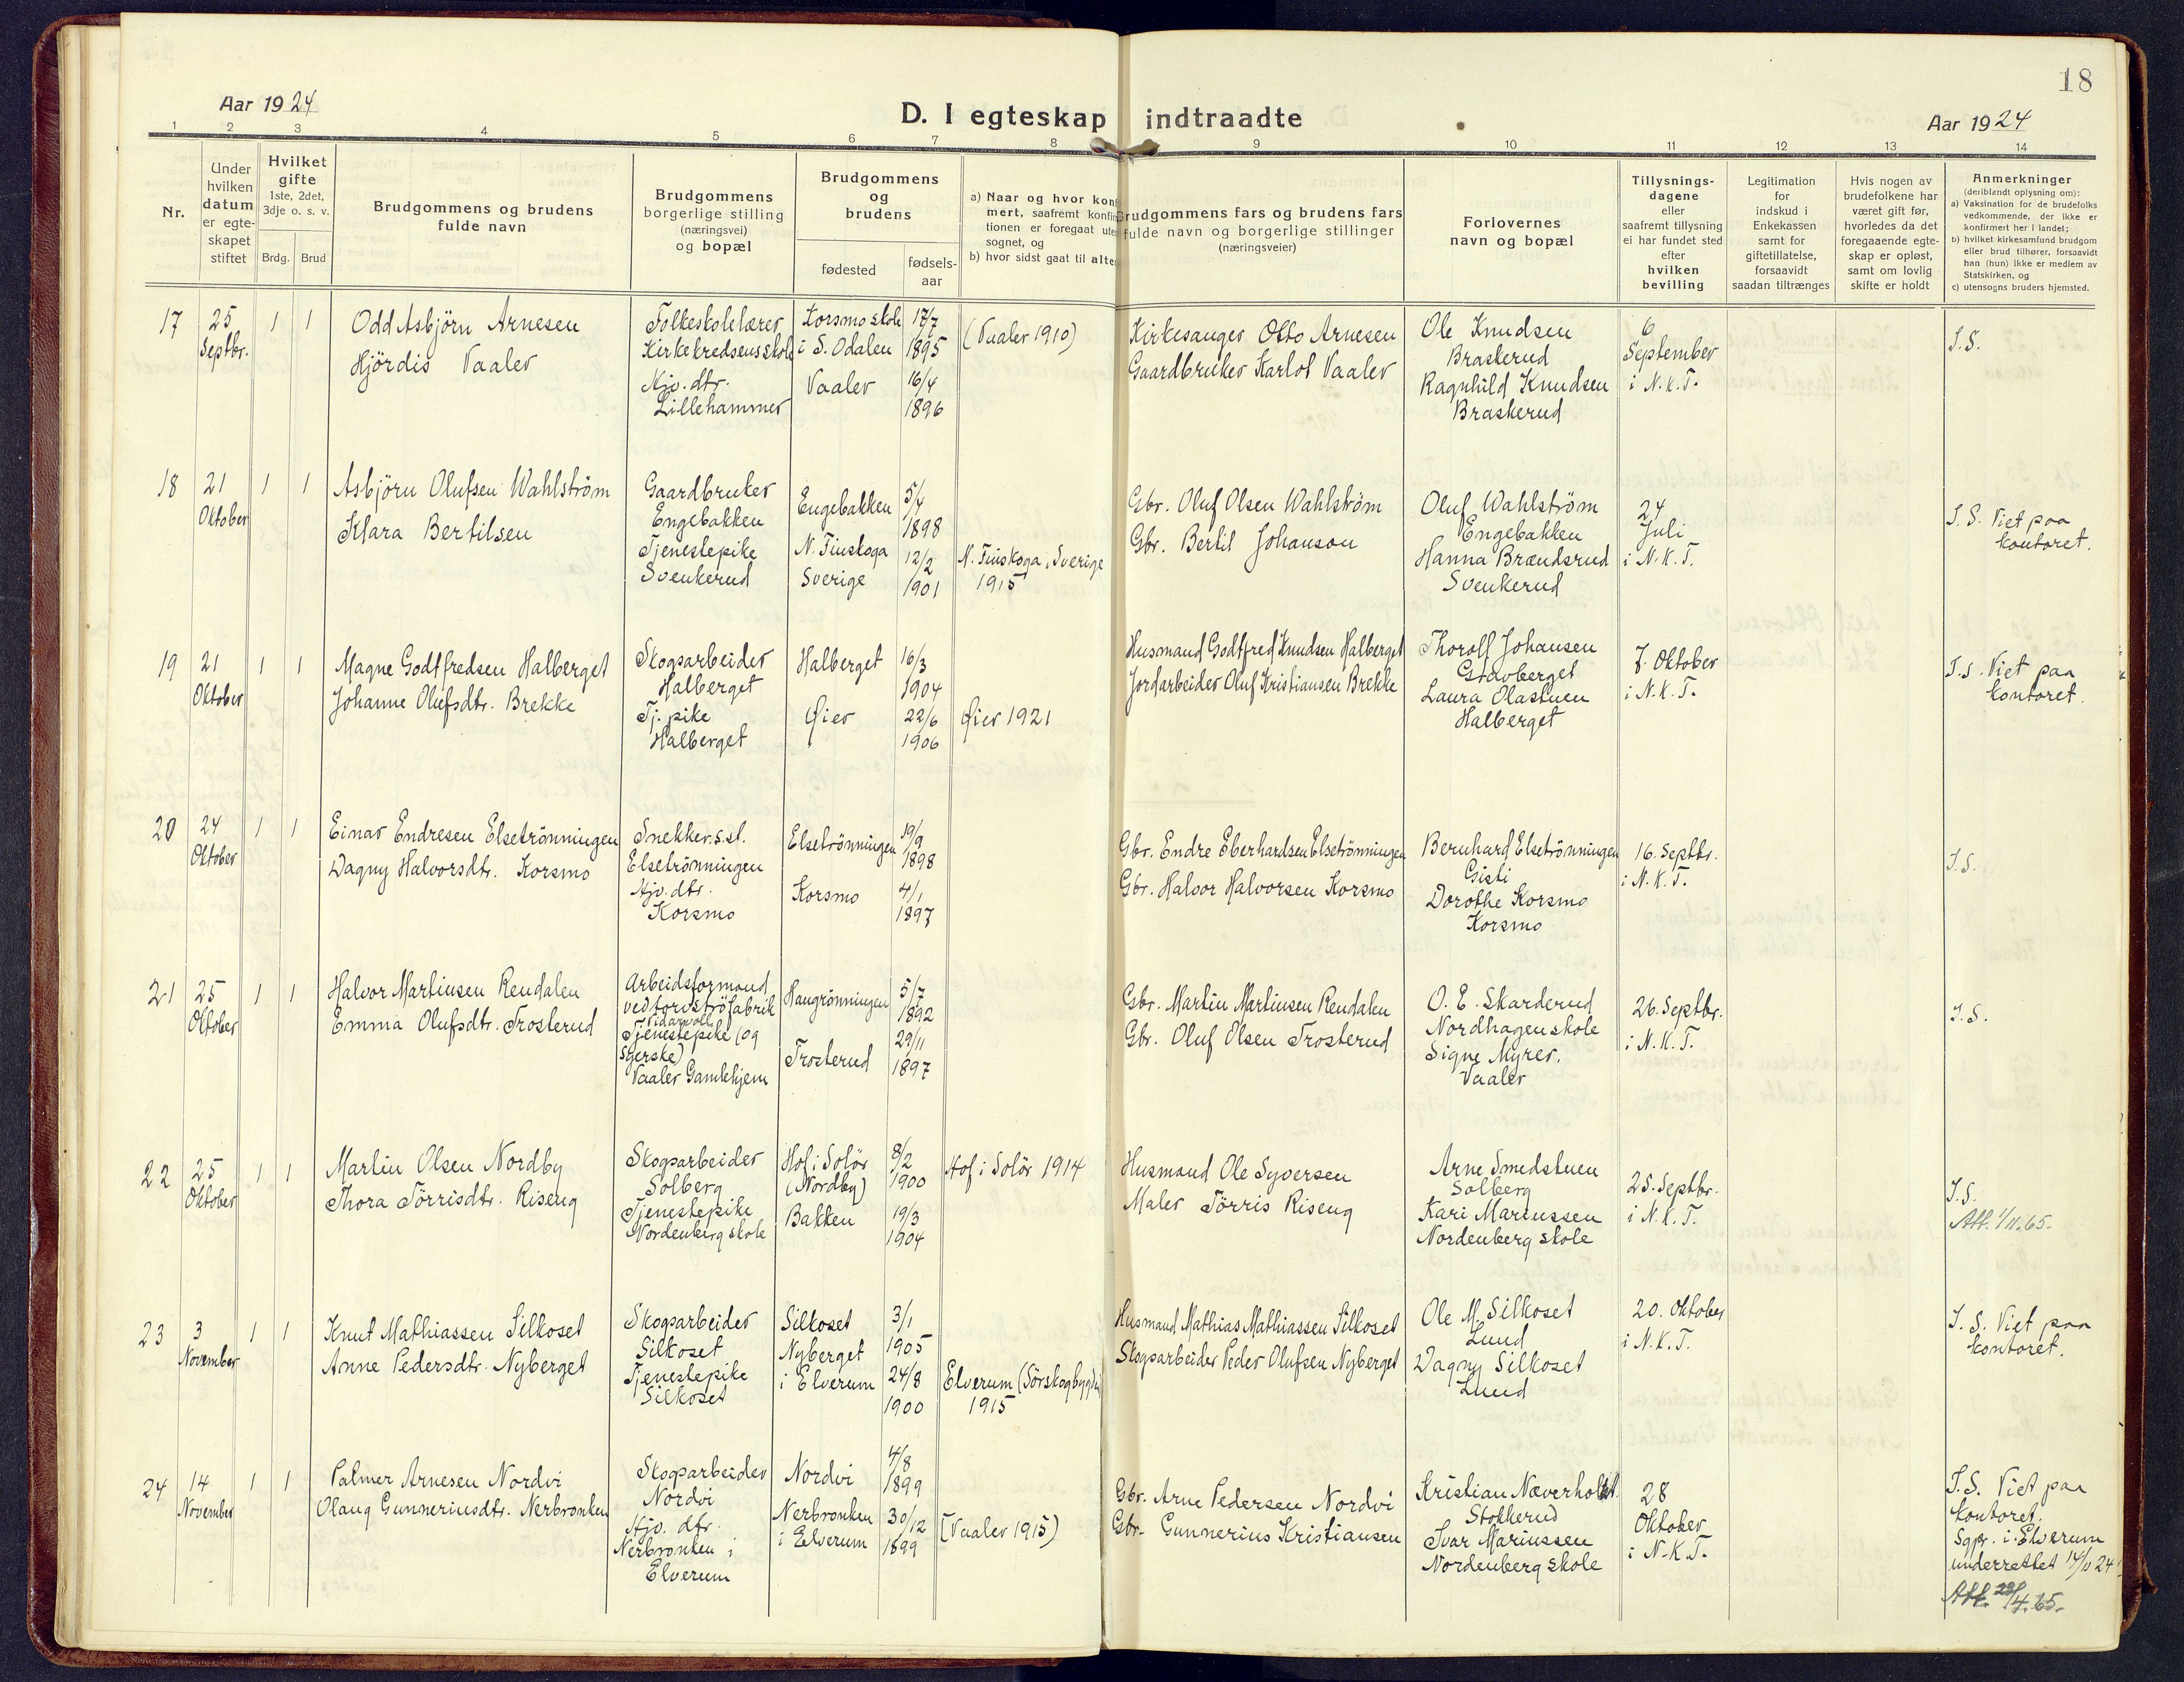 18
Aar 1924
D. I egteskap indtraadte
Aar 1924
1 2 3 4 5 6 7 8 9 10 11 12 13 14
Nr.
Under
hvilken
datum
er egte-
skapet
stiftet
Hvilket
gifte
1ste, 2det,
3dje o. s. v.
Brdg. Brud
Brudgommens og brudens
fulde navn
Brudgommens
borgerlige stilling
(næringsvei)
og bopæl
Brudgommens
og
brudens
fødested
fødsels-
aar
a) Naar og hvor konf
mert, saafremt konfir
tionen er foregaat uten
sognet, og
b) hvor sidst gaat til alter
Brudgommens fars og brudens fars
fulde navn og borgerlige stillinger
(næringsveier)
Forlovernes
navn og bopæl
Tillysnings-
dagene
eller
saafremt tillysning
ei har fundet sted
efter
hvilken
bevilling
Legitimation
for
indskud i
Enkekassen
samt for
giftetillatelse,
forsaavidt
saadan tiltrænges
Hvis nogen av
brudefolkene har
været gift før,
hvorledes da det
foregaaende egte-
skap er opløst,
samt om lovlig
skifte er holdt
Anmerkninger
(deriblandt oplysning om):
a) Vaksination for de brudefolks
vedkommende, der ikke er
konfirmert her i landet;
b) hvilket kirkesamfund brudgom
eller brud tilhører, forsaavidt
han (hun) ikke er medlem av
Statskirken, og
c) utensogns bruders hjemsted.
17
25
Septbr.
1 1
Odd Asbjörn Arnesen
Hjördis Vaaler
Folkeskolelærer
Kirkekredsens skole
Hjv. dtr.
Lillehammer
Korsmo skole
i S. Odalen
Vaaler
17/7
1895
16/4
1896
(Vaaler 1910)
Kirkesanger Otto Arnesen
Gaardbruker Karlot Vaaler
Ole Knudsen
Braskerud
Ragnhild Knudsen
Braskerud
6
September
i N.K.T.
I.S.
18
21
Oktober
1 1
Asbjörn Olufsen Wahlström
Klara Bertilsen
Gaardbruker
Engebakken
Tjenestepike
Svenkerud
Engebakken
N. Finskoga
Sverige
5/4
1898
12/2
1901
N. Finskoga, Sverige
1915
Gbr. Oluf Olsen Wahlström
Gbr. Bertil Johanson
Oluf Wahlström
Engebakken
Hanna Brændsrud
Svenkerud
24
Juli
i N.K.T.
I.S. Viet paa
kontoret.
19
21
Oktober
1 1
Magne Godtfredsen Halberget
Johanne Olufsdtr. Brekke
Skogsarbeider
Halberget
Tj. pike
Halberget
Halberget
Øier
16/3
1904
22/6
1906
Øier 1921
Husmand Godtfred Knudsen Halberget
Jordarbeider Oluf Kristiansen Brekke
Thorolf Johansen
Stavberget
Laura Olastuen
Halberget
7. Oktober
i N.K.T.
I.S. Viet paa
kontoret.
20
24
Oktober
1 1
Einar Endresen Elsetrönningen
Dagny Halvorsdtr. Korsmo
Snekker. s.st.
Elsetrönningen
Hjv. dtr.
Korsmo
Elsetrönningen
Korsmo
19/9
1898
4/1
1897
Gbr. Endre Eberhardsen Elsetrönningen
Gbr. Halvor Halvorsen Korsmo
Bernhard Elsetrönningen
Gisti
Dorothe Korsmo
Korsmo
16. Septbr.
i N.K.T.
I.S.
21
25
Oktober
1 1
Halvor Martinsen Rendalen
Emma Olufsdtr. Trosterud
Arbeidsformand
ved torvströfabrik
Vidarvoll
Tjenestepike (og
syerske)
Vaaler Gamlehjem
Haugrönningen
Trosterud
5/7
1892
29/11
1897
Gbr. Martin Martinsen Rendalen
Gbr. Oluf Olsen Trosterud
O. E. Skarderud
Nordhagen skole
Signe Myrer.
Vaaler
26. Septbr.
i N.K.T.
I.S.
22
25
Oktober
1 1
Martin Olsen Nordby
Thora Törrisdtr. Riseng
Skogsarbeider
Solberg
Tjenestepike
Nordenberg skole
Hof i Solör
(Nordby)
Bakken
8/2
1900
19/3
1904
Hof i Solör 1914
Husmand Ole Syversen
Maler Törris Riseng
Arne Smedstuen
Solberg
Kari Mariussen
Nordenberg skole
25. Septbr.
i N.K.T.
I.S.
Att. 1/11.65.
23
3
November
1 1
Knut Mathiassen Silkoset
Anne Pedersdtr. Nyberget
Skogsarbeider
Silkoset
Tjenestepike
Silkoset
Silkoset
Nyberget
i Elverum
3/1
1905
24/8
1900
Elverum (Sörskogbygda)
1915
Husmand Mathias Mathiassen Silkoset
Skogsarbeider Peder Olufsen Nyberget
Ole M. Silkoset
Lund
Dagny Silkoset
Lund
20. Oktober
i N.K.T.
I.S. Viet paa
kontoret.
24
14
November
1 1
Palmer Arnesen Nordvi
Olaug Gunneriusdtr. Nerbronken
Skogsarbeider
Nordvi
Hjv. dtr.
Nerbronken i
Elverum
Nordvi
Nerbronken
i Elverum
4/8
1899
30/12
1899
(Vaaler 1915)
Gbr. Arne Pedersen Nordvi
Gbr. Gunnerius Kristiansen
Kristian Næverholdt.
Stokkerud
Ivar Mariussen
Nordenberg skole
28
Oktober
i N.K.T.
I.S. Viet paa
kontoret.
Sgpr. i Elverum
underrettet 14/11 24
Att. 29/4.65.